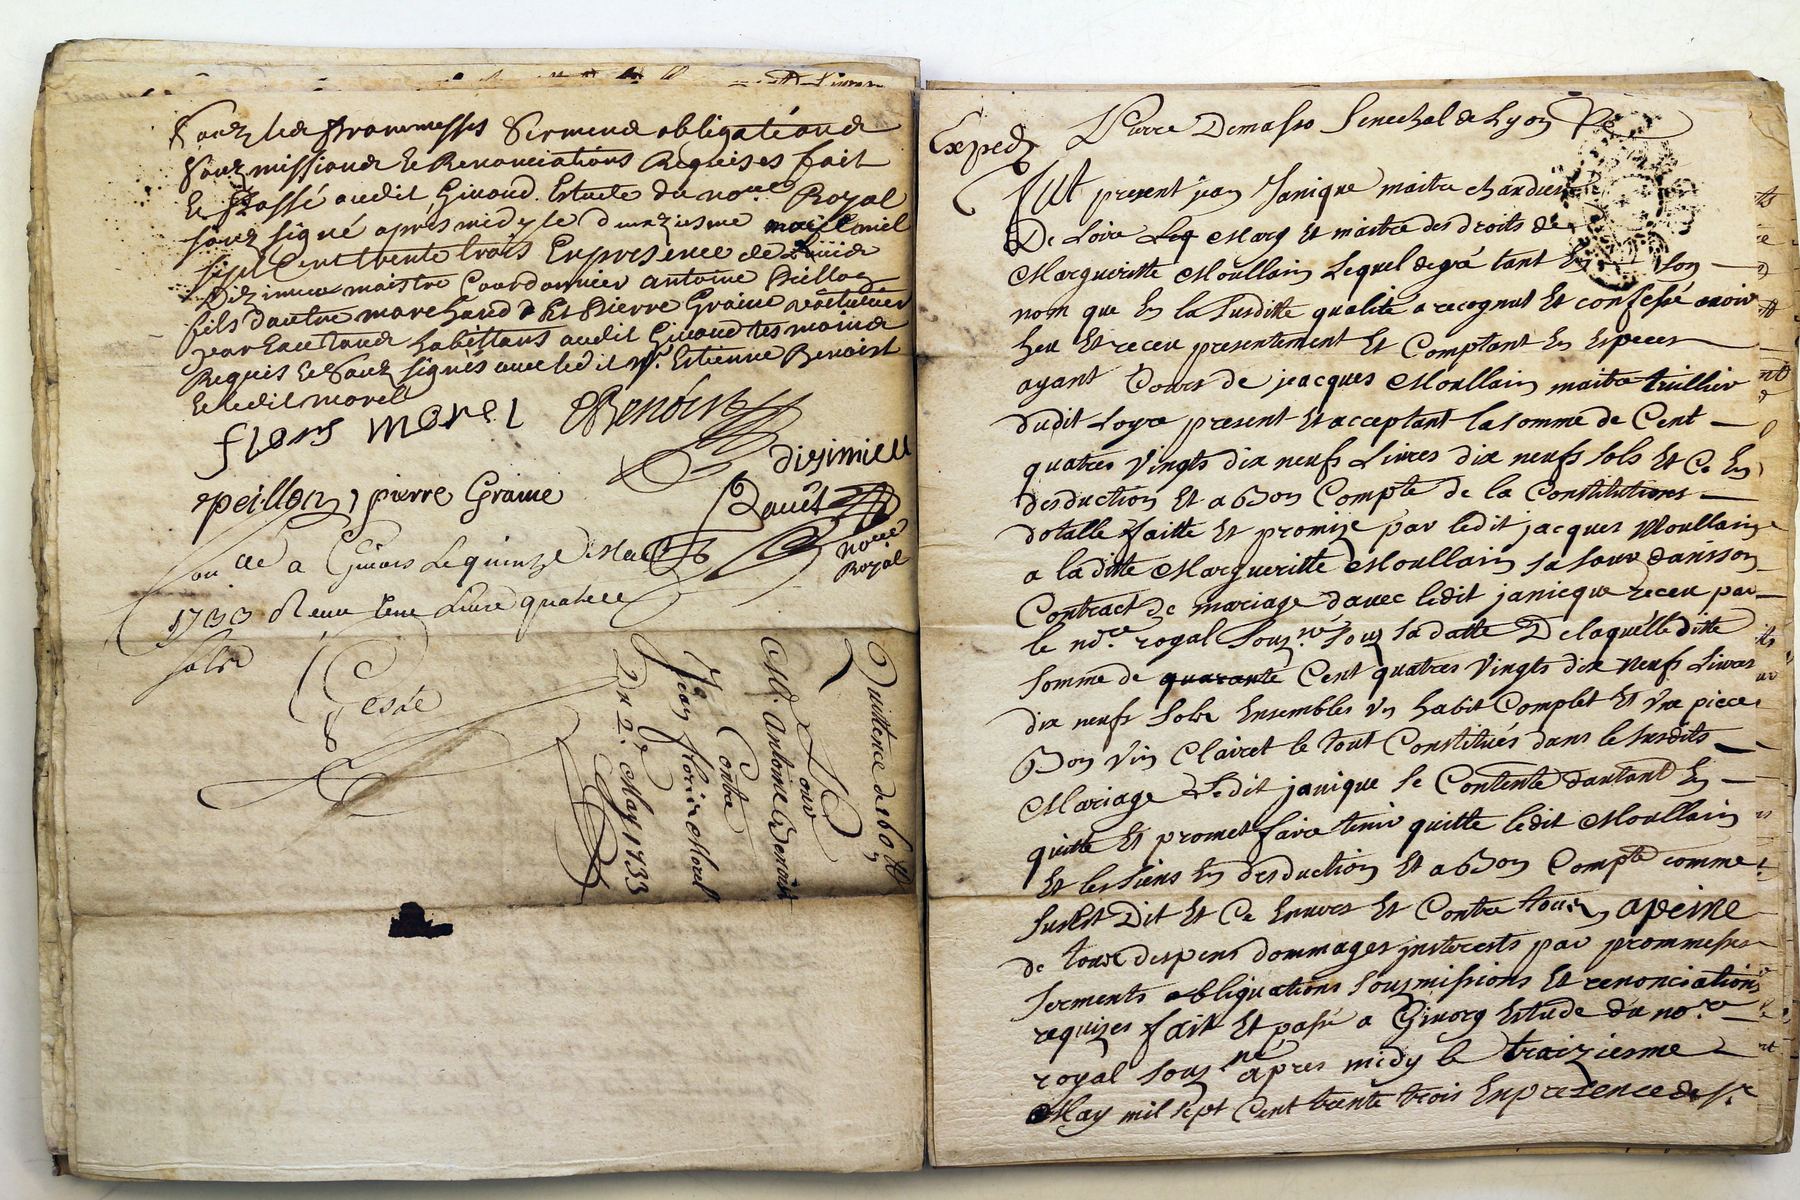 Souz les prommesses Sermens obligations
Souzmissions Et Renonciations Requises fait
Et Passé audit Givord Estude du no.re Royal
souz signé apres midy le douziesme may mil
sept Cent trente trois En presence de Louis
maistre Courdonnier Antoine Peillon
fils d'autre marchand Et Pierre Graine voiturier
par Eau tous habittans audit Givord tesmoins
Requis Et Souz signés avec ledit Sr. Estienne Benoist
Et ledit morel
floris morel Benoist
disimieu
epeillon, pierre Graine
no.re
Royal
a Givors Le quinze May
1733 Reçu une Livre quatre
sols
Quittance de 160 tt
Pour
Mr. Antoine Benoist
Contre
Jean floris Morel
Du 12.e May 1733
Exped.
Pierre Demasso Senechal de Lyon
Fut present jean Janique maitre chandelier
De Loire Marg Et maitre des droits de
Margueritte Moullain Lequel de gré tant En son
nom que En la Susditte qualité a recognut Et confessé avoir
heu Et receu presentement Et Comptant En Especes
ayant Cours de jeacques Moullain maitre tuillier
dudit Loyre present Et acceptant la somme de Cent
quatres Vingts dix neufs Livres dix neufs sols Et Ce En
desduction Et a Bon Compte de la Constitutions
dotalle faitte Et promize par ledit jacques Moullain
a la ditte Margueritte Moullain sa sœur dans son
Contract de mariage d'avec ledit janicque receu par
le no.re royal Souz.né souz sa datte De laquelle ditte
somme de quarante Cent quatres Vingts dix neufs Livres
dix neufs Sols Ensembles Un habit Complet Et Une piece
Bon Vin Clairet le tout Constitués dans le susdits
Mariage Ledit janique se Contente d'autant En
quitte Et promet faire tenir quitte ledit Moullain
Et les siens En desduction Et a Bon Compte comme
Susdit Dit Et Ce Envers Et Contre tous, apeine
de tous despens dommages jnterests par prommesses
serments obliguations souzmissions Et renonciations
requizes fait Et passé a Givors Estude du no.re
royal souz.né apres midy le traiziesme
May mil sept Cent trente trois En presence de Sr.